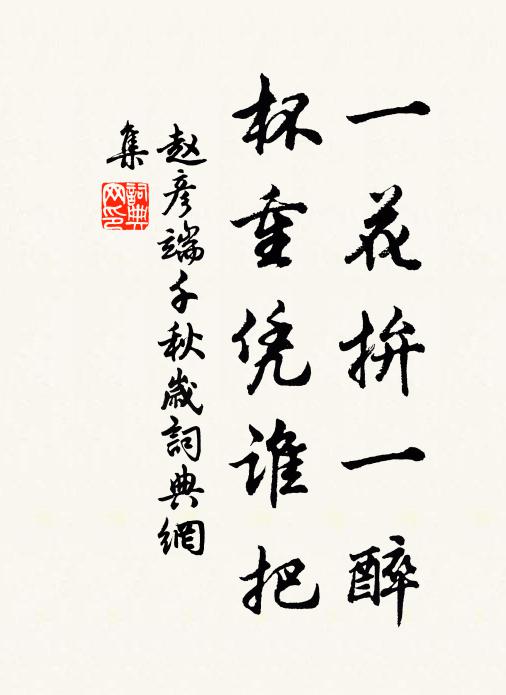 一花拚一醉
杯重凭谁把
赵彦端千秋歲詞典網
集
詞典網印